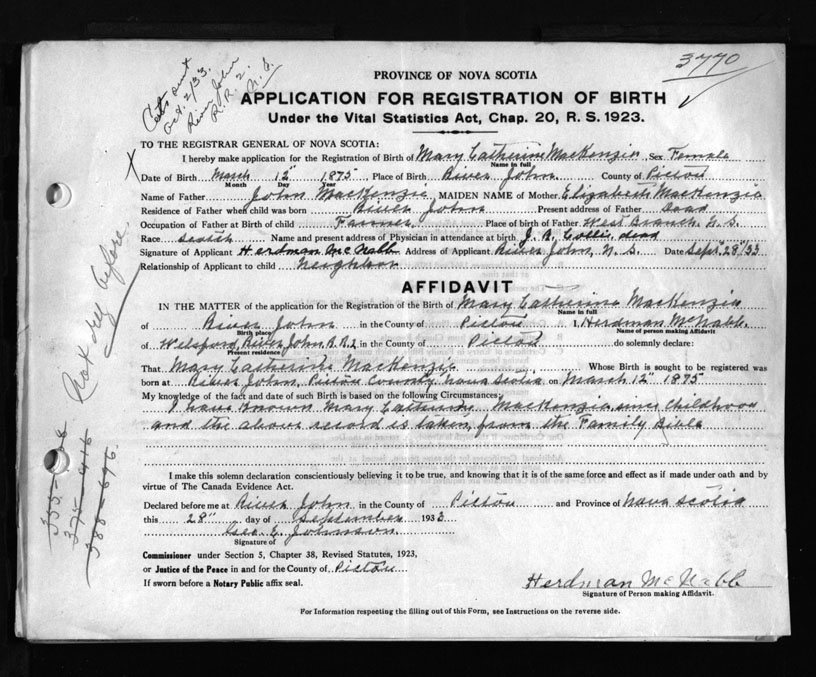 3770
Certs sent
Oct. 2/33.
River John
R.R. 2. N.S.
PROVINCE OF NOVA SCOTIA
APPLICATION FOR REGISTRATION OF BIRTH
Under the Vital Statistics Act, Chap. 20, R. S. 1923.
TO THE REGISTRAR GENERAL OF NOVA SCOTIA:
I hereby make application for the Registration of Birth of Mary Catherine MacKenzie Sex Female
Name in full
Date of Birth March 12" 1875 Place of Birth River John County of Pictou
Month Day Year
Name of Father John MacKenzie MAIDEN NAME of Mother Elizabeth MacKenzie
Residence of Father when child was born River John Present address of Father Dead
Occupation of Father at Birth of child Farmer Place of birth of Father West Branch N.S.
Race Scotch Name and present address of Physician in attendance at birth J. A. Collie, dead
Signature of Applicant Herdman McNabb Address of Applicant River John, N.S. Date Sept. 28"/33
Relationship of Applicant to child Neighbor
AFFIDAVIT
IN THE MATTER of the application for the Registration of the Birth of Mary Catherine MacKenzie
Name in full
of River John in the County of Pictou I, Herdman McNabb
Birth place Name of person making Affidavit
of Welsford, River John R.R.2 in the County of Pictou do solemnly declare:
Present residence
That Mary Catherine MacKenzie Whose Birth is sought to be registered was
born at River John, Pictou County Nova Scotia on March 12" 1875
My knowledge of the fact and date of such Birth is based on the following Circumstances:
I have known Mary Catherine MacKenzie since childhood
and the above record is taken from the Family Bible
I make this solemn declaration conscientiously believing it to be true, and knowing that it is of the same force and effect as if made under oath and by
virtue of The Canada Evidence Act.
Declared before me at River John in the County of Pictou and Province of Nova Scotia
this 28" day of September 1933
Geo. E. Johnson
Signature of
Commissioner under Section 5, Chapter 38, Revised Statutes, 1923,
or Justice of the Peace in and for the County of Pictou
If sworn before a Notary Public affix seal.
Herdman McNabb
Signature of Person making Affidavit.
For Information respecting the filling out of this Form, see Instructions on the reverse side.
Not reg before